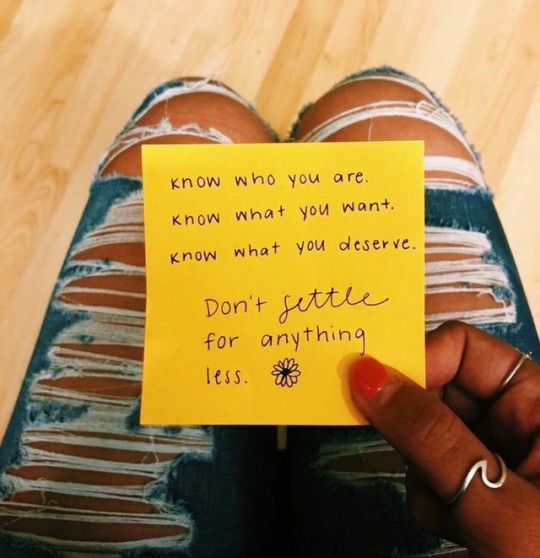 know who you are.
know what you want.
know what you deserve.
Don't settle
for anything
less.